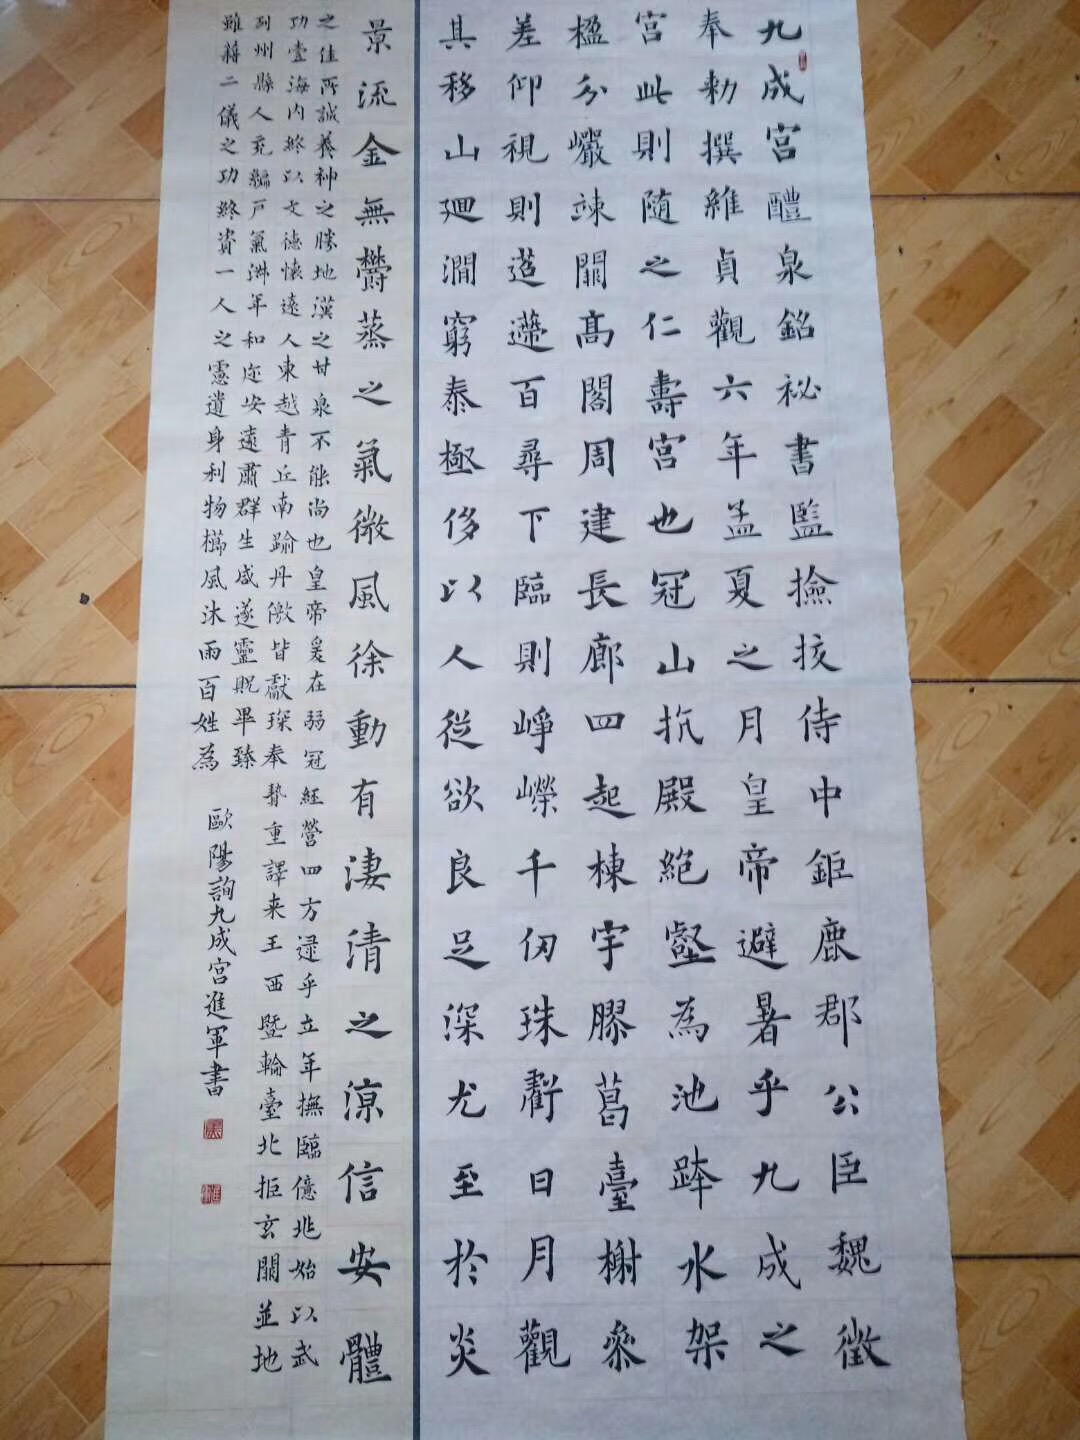 九成宮醴泉銘祕書監撿挍侍中鉅鹿郡公臣魏徵
奉勑撰維貞觀六年孟夏之月皇帝避暑乎九成之
宮此則隨之仁壽宮也冠山抗殿絕壑為池跨水架
楹分巖竦闕高閣周建長廊四起棟宇膠葛臺榭參
差仰視則迢遰百尋下臨則崢嶸千仞珠虧日月觀
其移山迴澗窮泰極侈以人從欲良足深尤至於炎
景流金無鬱蒸之氣微風徐動有淒清之涼信安體
之佳所誠養神之勝地漢之甘泉不能尚也皇帝爰在弱冠經營四方逮乎立年撫臨億兆始以武
功壹海內終以文德懷遠人東越青丘南踰丹儌皆獻琛奉贄重譯来王西暨輪臺北拒玄闕並地
列州縣人充編戶氣淑年和迩安遠肅群生咸遂靈貺畢臻
雖藉二儀之功終資一人之慮遺身利物櫛風沐雨百姓為
歐陽詢九成宮進軍書